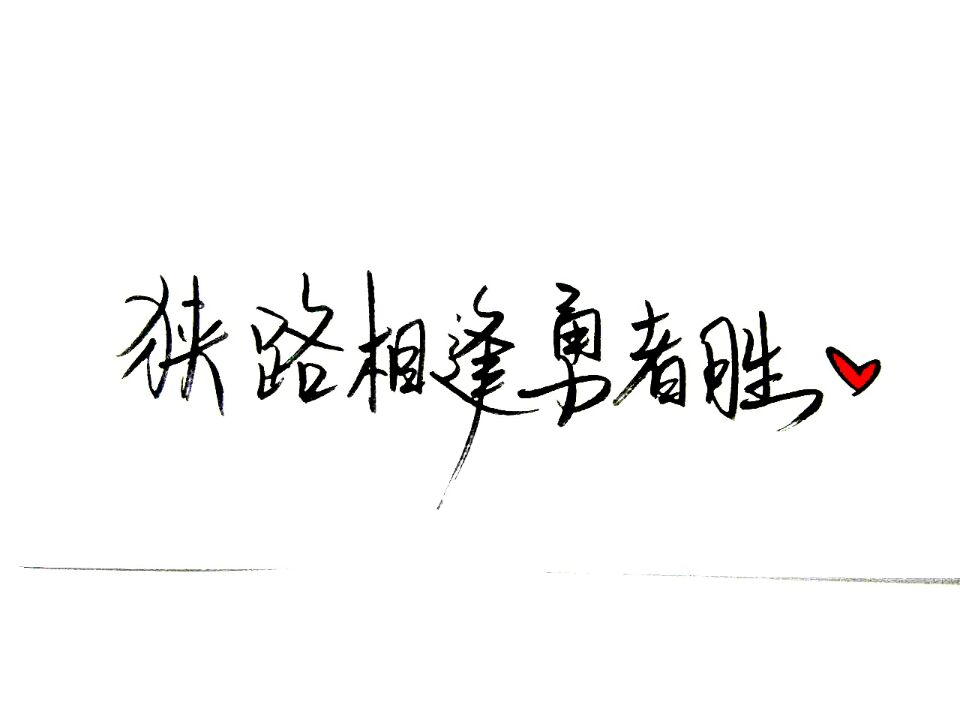 狭路相逢勇者胜